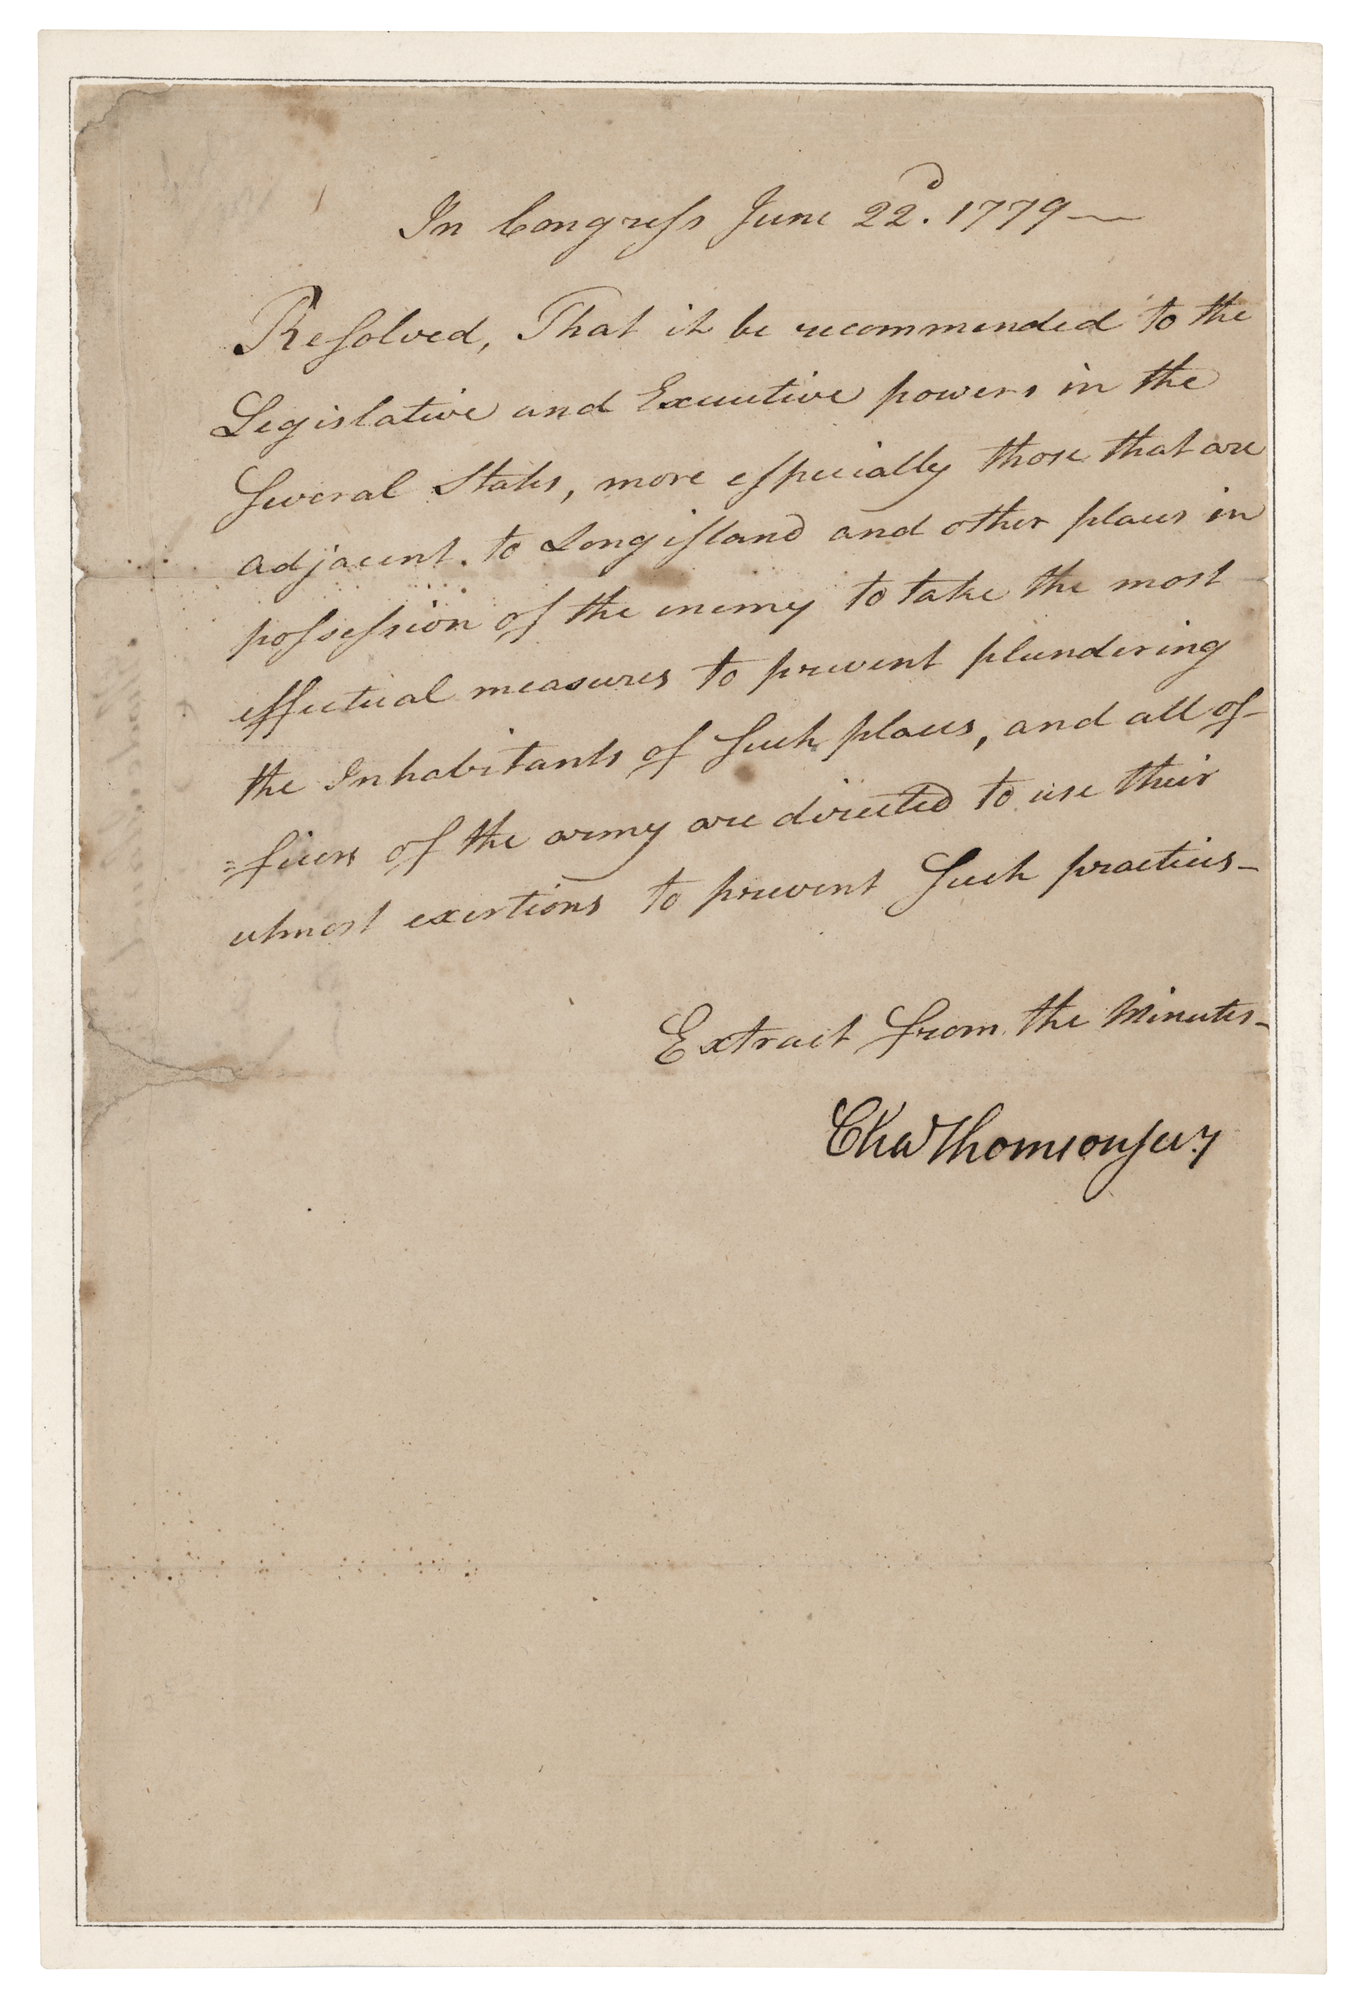 In Congress June 22d. 1779 —
Resolved, That it be recommended to the
Legislative and Executive powers in the
Several States, more especially those that are
adjacent. to Long island and other places in
possession of the enemy to take the most
effectual measures to prevent plundering
the Inhabitants of Such places, and all of-
=ficers of the army are directed to use their
utmost exertions to prevent Such practices —
Extract from the Minutes —
Chas Thomson Secy